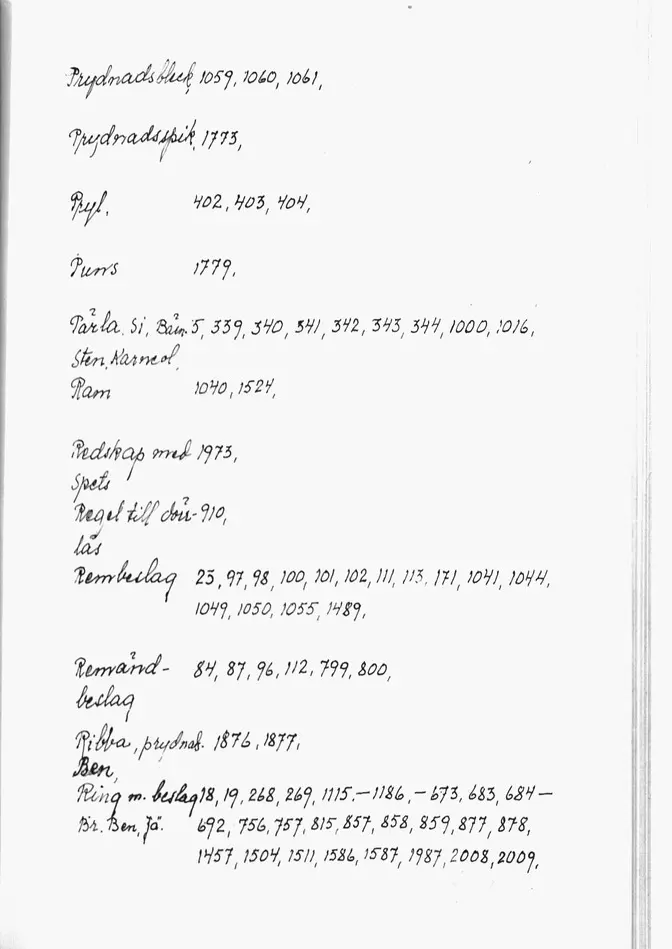 Prydnadsbleck, 1059, 1060, 1061,
Prydnadsspik, 1773,
Pryl, 402, 403, 404,
Puns 1779,
Pärla. Si, Bärn. 5, 339, 340, 341, 342, 343, 344, 1000, 1016,
Sten, Karneol,
Ram 1040, 1524,
Redskap med 1973,
Spets
Regel till dörr- 910,
lås
Rembeslag 23, 97, 98, 100, 101, 102, 111, 113, 171, 1041, 1044,
1049, 1050, 1055, 1489,
Remänd- 84, 87, 96, 112, 799, 800,
beslag
Ribba, prydnad. 1876, 1877,
Ben,
Ring m. beslag 18, 19, 268, 269, 1115.-1186,- 673, 683, 684-
Br. Ben, Jä. 692, 756, 757, 815, 857, 858, 859, 877, 878,
1457, 1504, 1511, 1586, 1587, 1987, 2008, 2009,